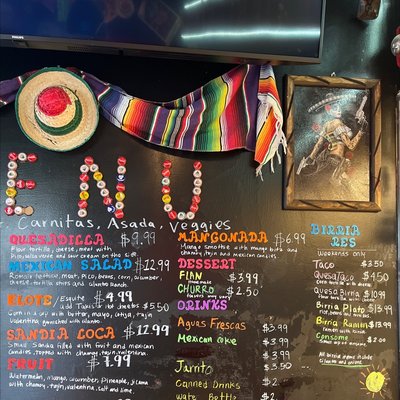 ENU
Carnitas, Asada, Veggies
QUESADILLA $9.99
Flour tortilla, cheese, meat with
Pico, salsa verde and sour cream on the side
MEXICAN SALAD $12.99
lettuce, meat, Pico, beans, corn, cucumber,
cheese, tortilla chips and cilantro Ranch.
ELOTE, Esquite $4.99
add Takis or hot cheetos $5.50
Corn in a cup with butter, mayo, cotija, tajin
Valentina garnished with cilantro
SANDIA LOCA $12.99
Sandia filled with fruit and mexican
Candies, topped with chamoy, tajin, valentina.
FRUIT $7.99
Watermelon, mango, cucumber, Pineapple, jicama
with chamoy, tajin, valentina, salt and lime.
MANGONADA $6.99
Mango smoothie with mango bits and
chamoy, tajin and mexican candies.
DESSERT
FLAN $3.99
CHURRO $2.50
DRINKS
Aguas Frescas $3.99
Mexican Coke $3.99
$3.99
Jarrito $3.50
Canned Drinks $2
Bottle $2
BIRRIA
RES
WEEKENDS ONLY
Taco $3.50
Quesa Taco $4.50
Corn tortilla with cheese
Quesa Birria $10.99
flour tortilla with cheese
Birria Plato $15.99
Birria Ramen $13.99
Consome $2.00
All birria includes
Cilantro and onions